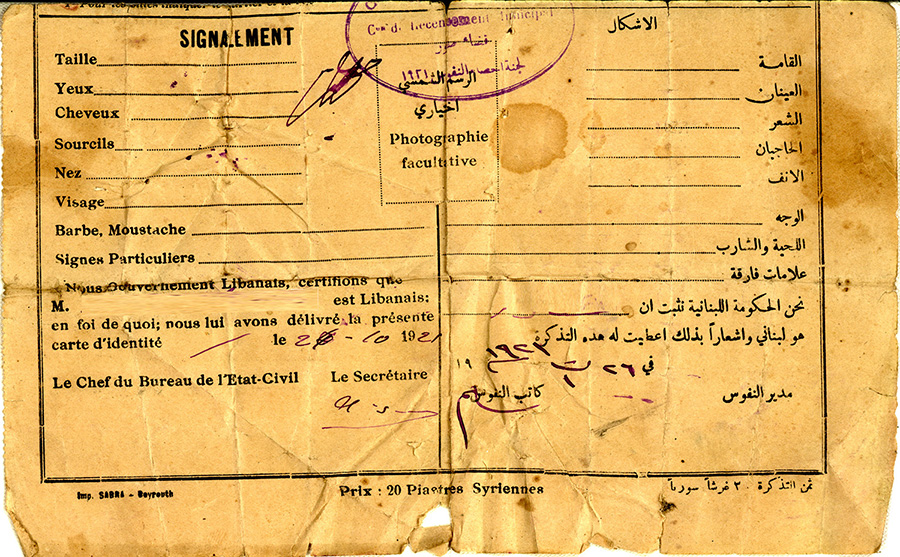 SIGNALEMENT
Taille
Yeux
Cheveux
Sourcils
Nez
Visage
Barbe, Moustache
Signes Particuliers
Nous Gouvernement Libanais, certifions que
M. est Libanais;
en foi de quoi; nous lui avons délivré la présente
carte d'identité le - 10 1921
Le Chef du Bureau de l'Etat-Civil Le Secrétaire
Recensement Municipal
قضاء صور
لجنة احصاء النفوس
الرسم الشمسي
اختياري
Photographie
facultative
الاشكال
القامة
العينان
الشعر
الحاجبان
الانف
الوجه
اللحية والشارب
علامات فارقة
نحن الحكومة اللبنانية نثبت ان
هو لبناني واشعاراً بذلك اعطيت له هذه التذكرة
في ٢٦ ت ١ ١٩
مدير النفوس كاتب النفوس
Imp. SABRA - Beyrouth
Prix : 20 Piastres Syriennes
ثمن التذكرة ٢٠ غرشاً سورياً